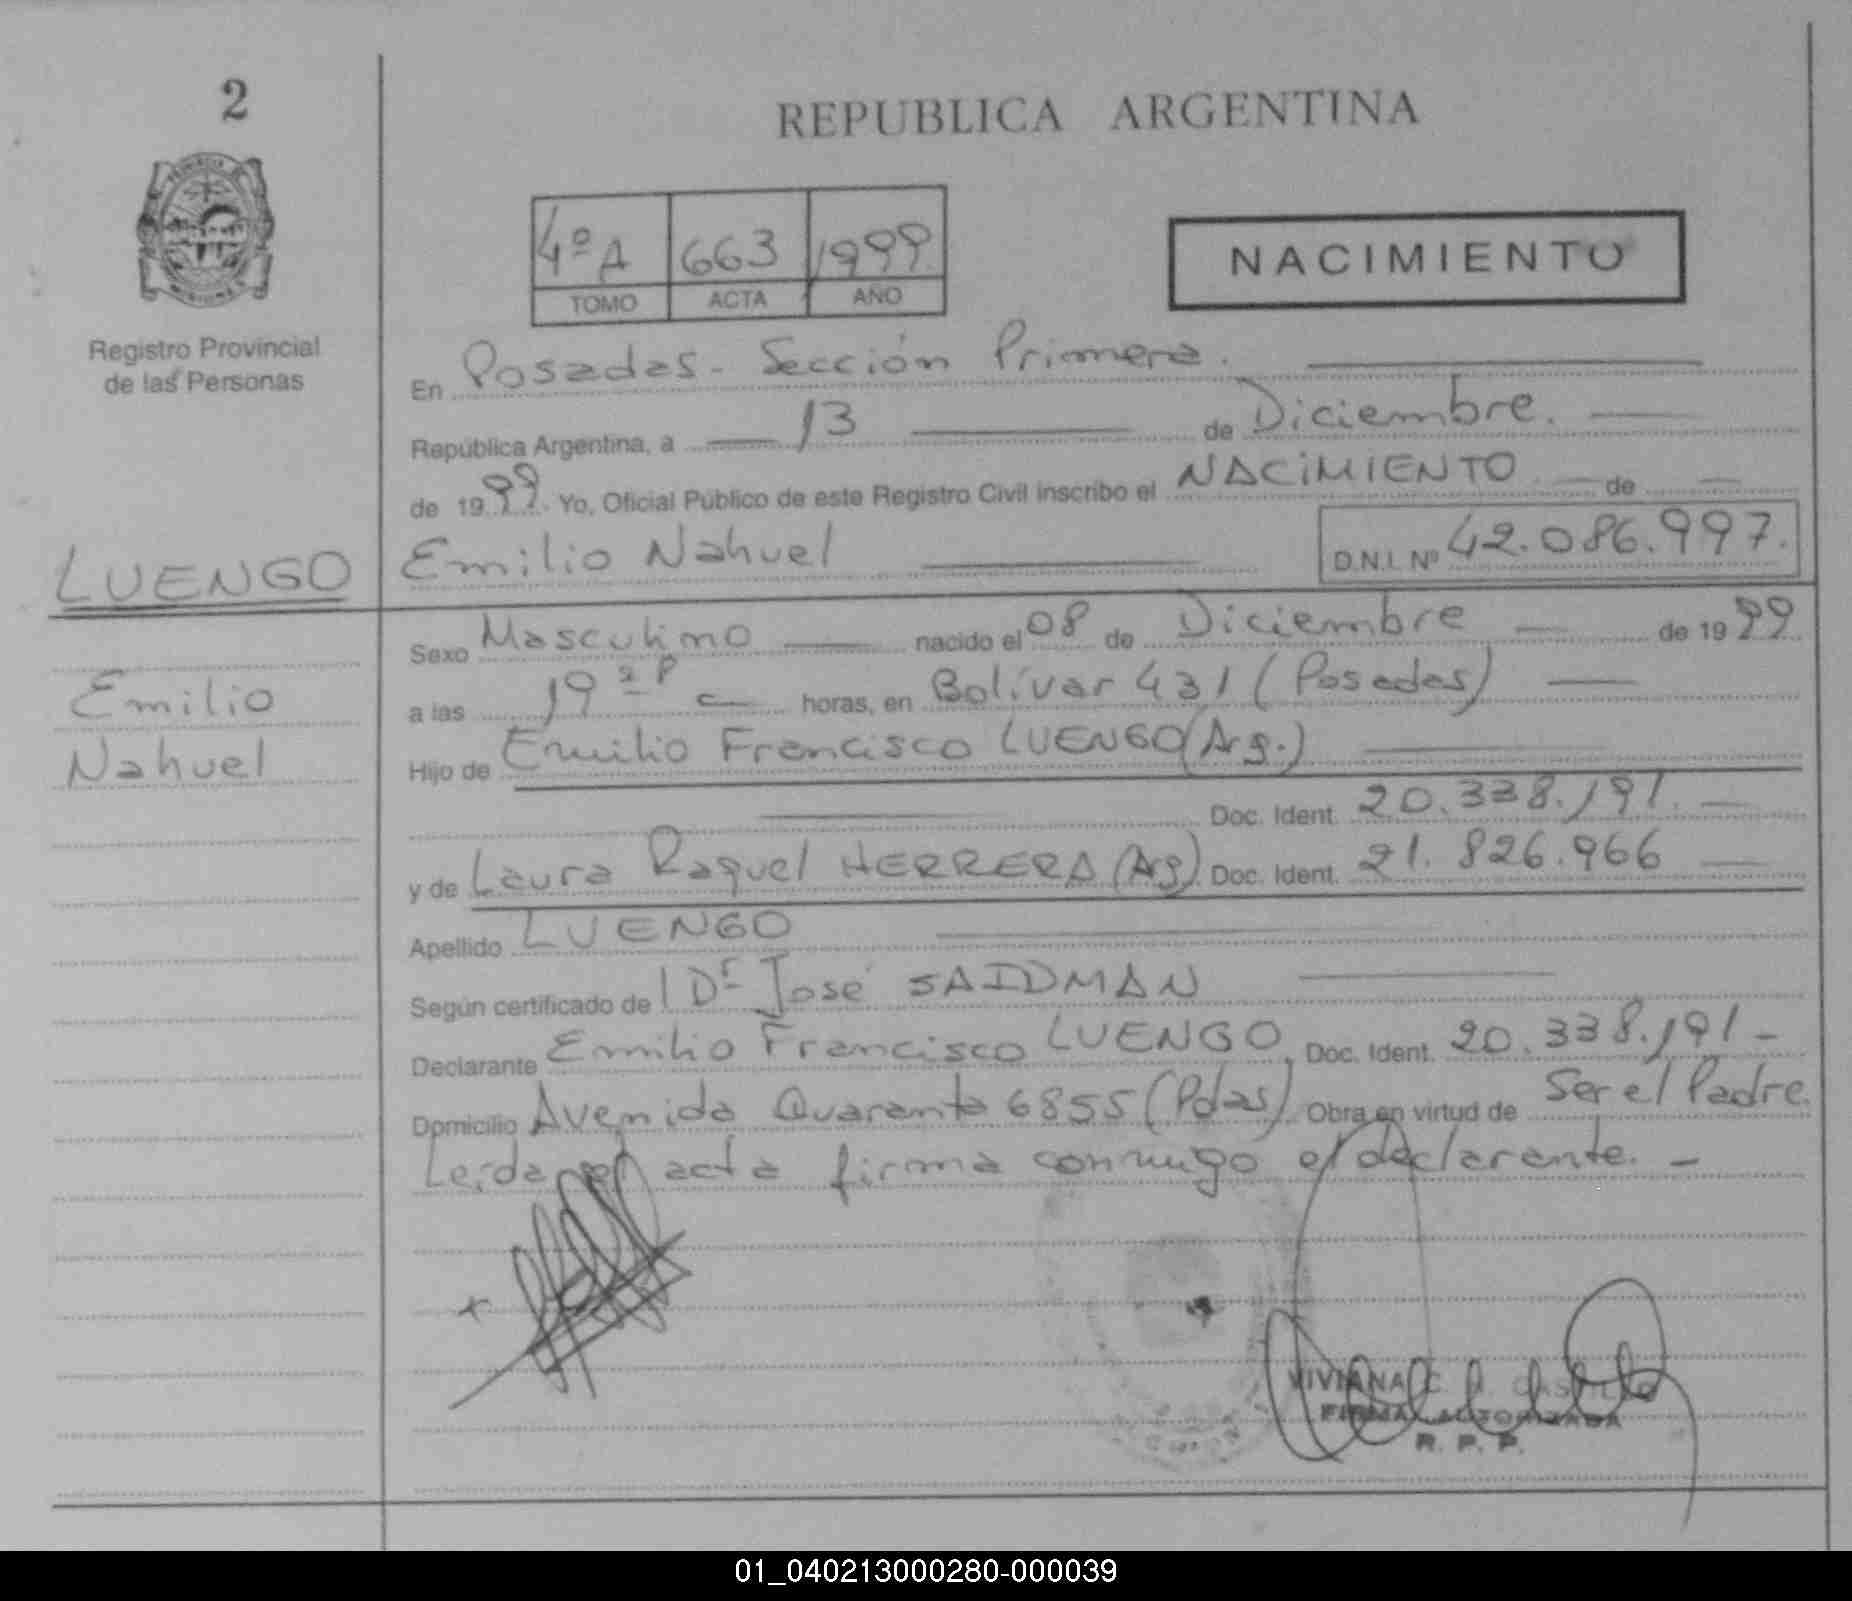 2
REPUBLICA ARGENTINA
4º A 663 1999
TOMO ACTA AÑO
NACIMIENTO
Registro Provincial
de las Personas
En Posadas - Sección Primera.
República Argentina, a 13 de Diciembre.
de 1999. Yo, Oficial Público de este Registro Civil inscribo el NACIMIENTO de
LUENGO
Emilio Nahuel D.N.I. Nº 42.086.997.
Emilio
Nahuel
Sexo Masculino nacido el 08 de Diciembre de 1999
a las 19 horas, en Bolívar 431 (Posadas)
Hijo de Emilio Francisco LUENGO (Arg.)
Doc. Ident. 20.338.191.
y de Laura Raquel HERRERA (Arg) Doc. Ident. 21.826.966
Apellido LUENGO
Según certificado de Dr José SAIDMAN
Declarante Emilio Francisco LUENGO, Doc. Ident. 20.338.191-
Domicilio Avenida Quaranta 6855 (Pdas) Obra en virtud de Ser el Padre.
Leída el acta firma conmigo el declarante. -
VIVIANA C.
FIRMA AUTORIZADA
R. P. P.
01_040213000280-000039